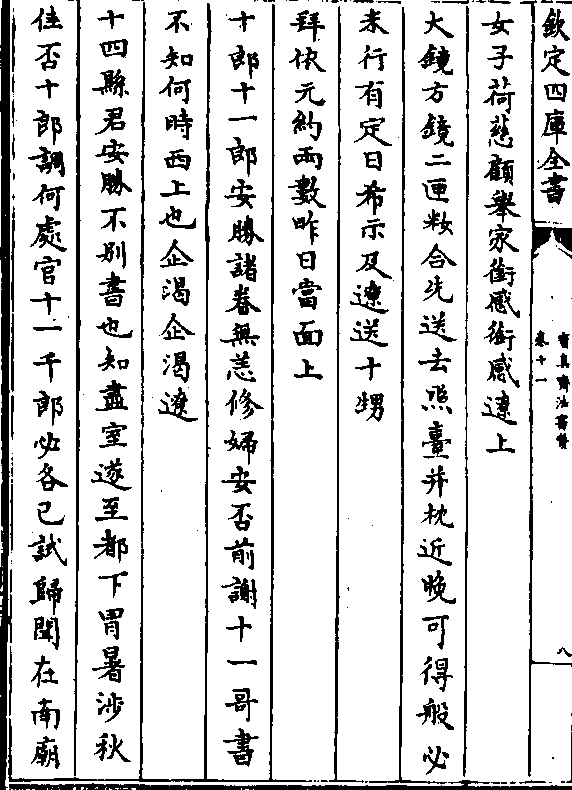 欽定四庫全書
寶真齋法書贊
卷十一
八
女子荷慈顧舉家銜感銜感遼上
大鏡方鏡二匣粧合先送去照臺并枕近晚可得般必
未行有定日希示及遼送十甥
拜依元約兩數昨日當面上
十郎十一郎安勝諸眷無恙修婦安否前謝十一哥書
不知何時西上也企渴企渴遼
十四縣君安勝不别書也知盡室遂至都下冒暑涉秋
佳否十郎調何處官十一千郎必各已試歸聞在南廟